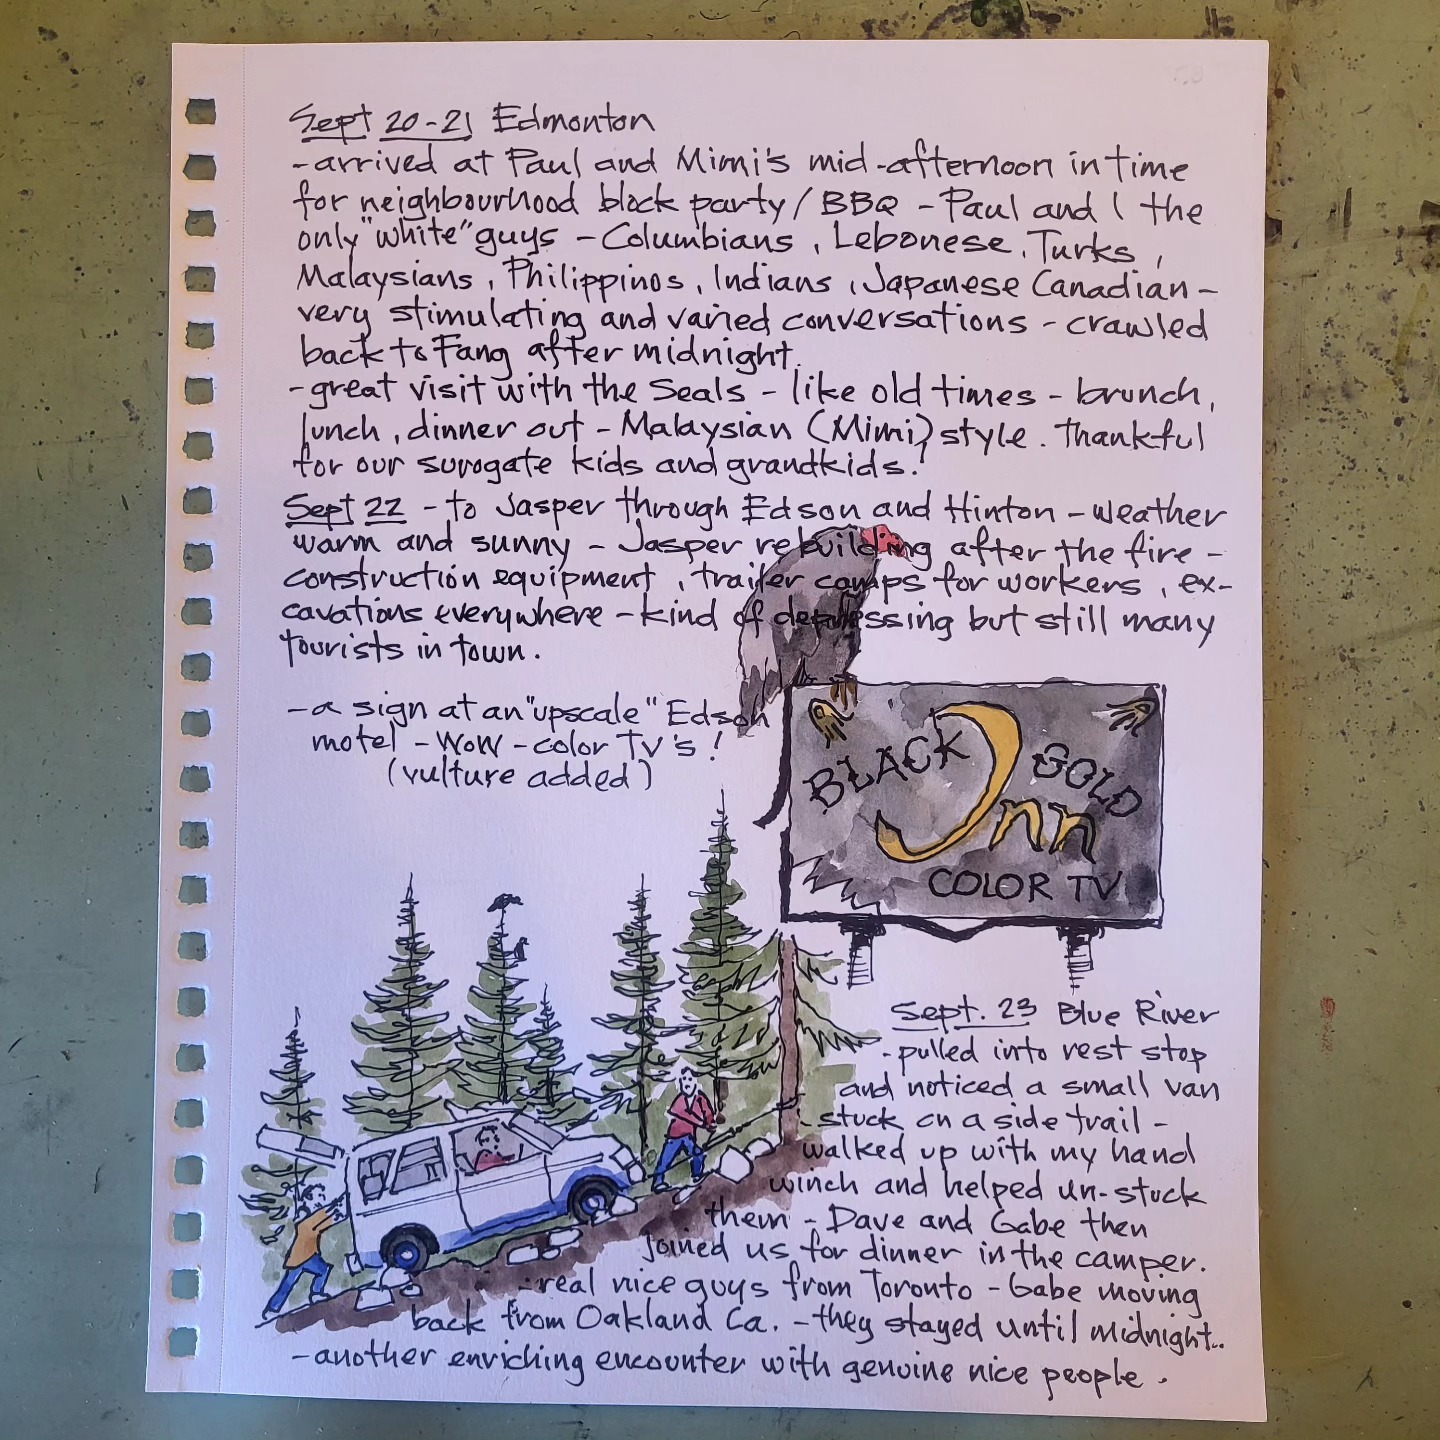 Sept 20-21 Edmonton
-arrived at Paul and Mimi's mid-afternoon in time
for neighbourhood block party / BBQ - Paul and I the
only "white" guys - Columbians, Lebonese, Turks,
Malaysians, Philippinos, Indians, Japanese Canadian -
very stimulating and varied conversations - crawled
back to Fang after midnight.
-great visit with the Seals - like old times - brunch,
lunch, dinner out - Malaysian (Mimi) style. Thankful
for our surogate kids and grandkids!
Sept 22 - to Jasper through Edson and Hinton - weather
warm and sunny - Jasper rebuilding after the fire -
construction equipment, trailer camps for workers, ex-
cavations everywhere - kind of depressing but still many
tourists in town.
-a sign at an "upscale" Edson
motel - WOW - color TV's!
(vulture added)
BLACK GOLD
Inn
COLOR TV
Sept. 23 Blue River
-pulled into rest stop
and noticed a small van
stuck on a side trail -
walked up with my hand
winch and helped un-stuck
them - Dave and Gabe then
joined us for dinner in the camper.
-real nice guys from Toronto - Gabe moving
back from Oakland Ca. - they stayed until midnight..
-another enriching encounter with genuine nice people.